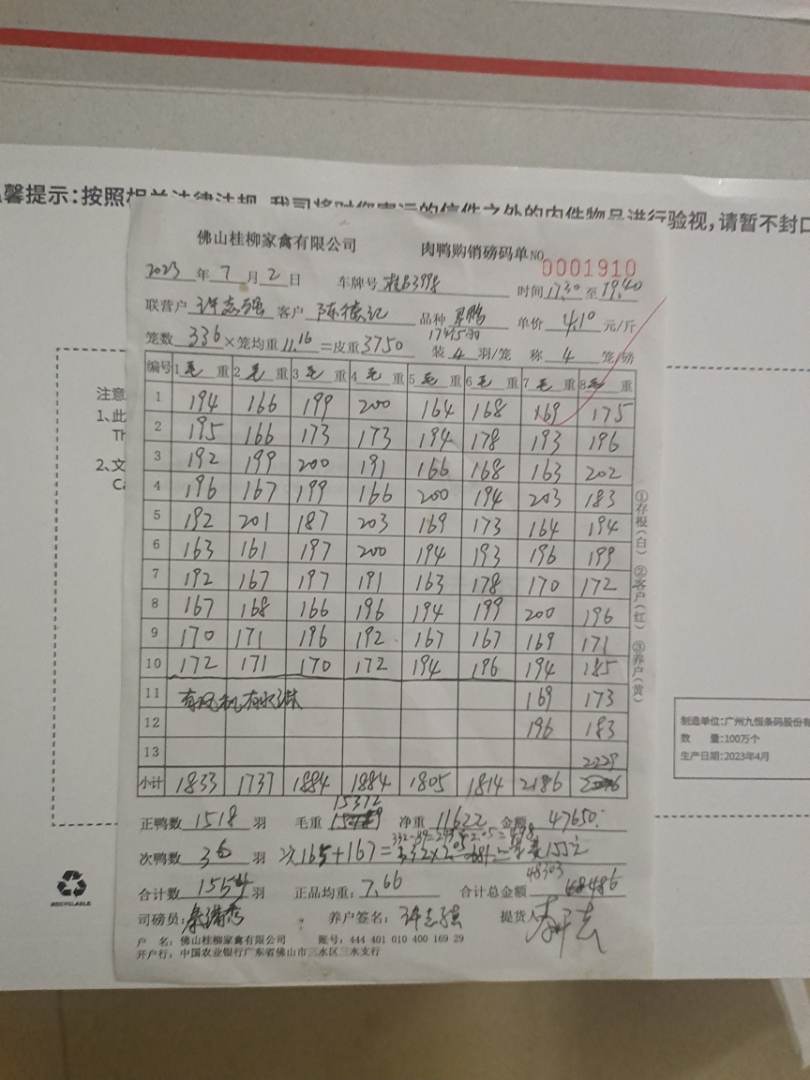 温馨提示:按照相关法律法规,我司将对您寄运的信件之外的内件物品进行验视,请暂不封口
佛山桂柳家禽有限公司 肉鸭购销磅码单NO 0001910
2023 年 7 月 2 日 车牌号 时间 17.30 至 19.40
联营户 许志强 客户 陈德记 品种 单价 4.10 元/斤
笼数 336 ×笼均重 11.16 =皮重 3750 装 4 羽/笼 称 4 笼/磅
编号 1 毛 重 2 毛 重 3 毛 重 4 毛 重 5 毛 重 6 毛 重 7 毛 重 8 毛 重
1 194 166 199 200 164 168 169 175
2 195 166 173 173 194 178 193 196
3 192 199 200 191 166 168 163 202
4 196 167 199 166 200 194 203 183
5 192 201 187 203 169 173 164 194
6 163 161 197 200 194 193 196 199
7 192 167 197 191 163 178 170 172
8 167 168 166 196 194 199 200 196
9 170 171 196 192 167 167 169 171
10 172 171 170 172 194 196 194 185
11 有风机有水淋 169 173
12 196 183
13 2229
小计 1833 1737 1884 1884 1805 1814 2186
正鸭数 1518 羽 毛重 15372 净重 11622 金额 47650
次鸭数 36 羽 次165+167=332×2.05
合计数 1554 羽 正品均重: 7.66 合计总金额 48303 48486
司磅员: 养户签名: 许志强 提货人
户 名: 佛山桂柳家禽有限公司 账号: 444 401 010 400 169 29
开户行: 中国农业银行广东省佛山市三水区三水支行
①存根(白) ②客户(红) ③养户(黄)
注意
1、此
Th
2、文
Ca
RECYCLABLE
制造单位:广州九恒条码股份有
数 量:100万个
生产日期:2023年4月